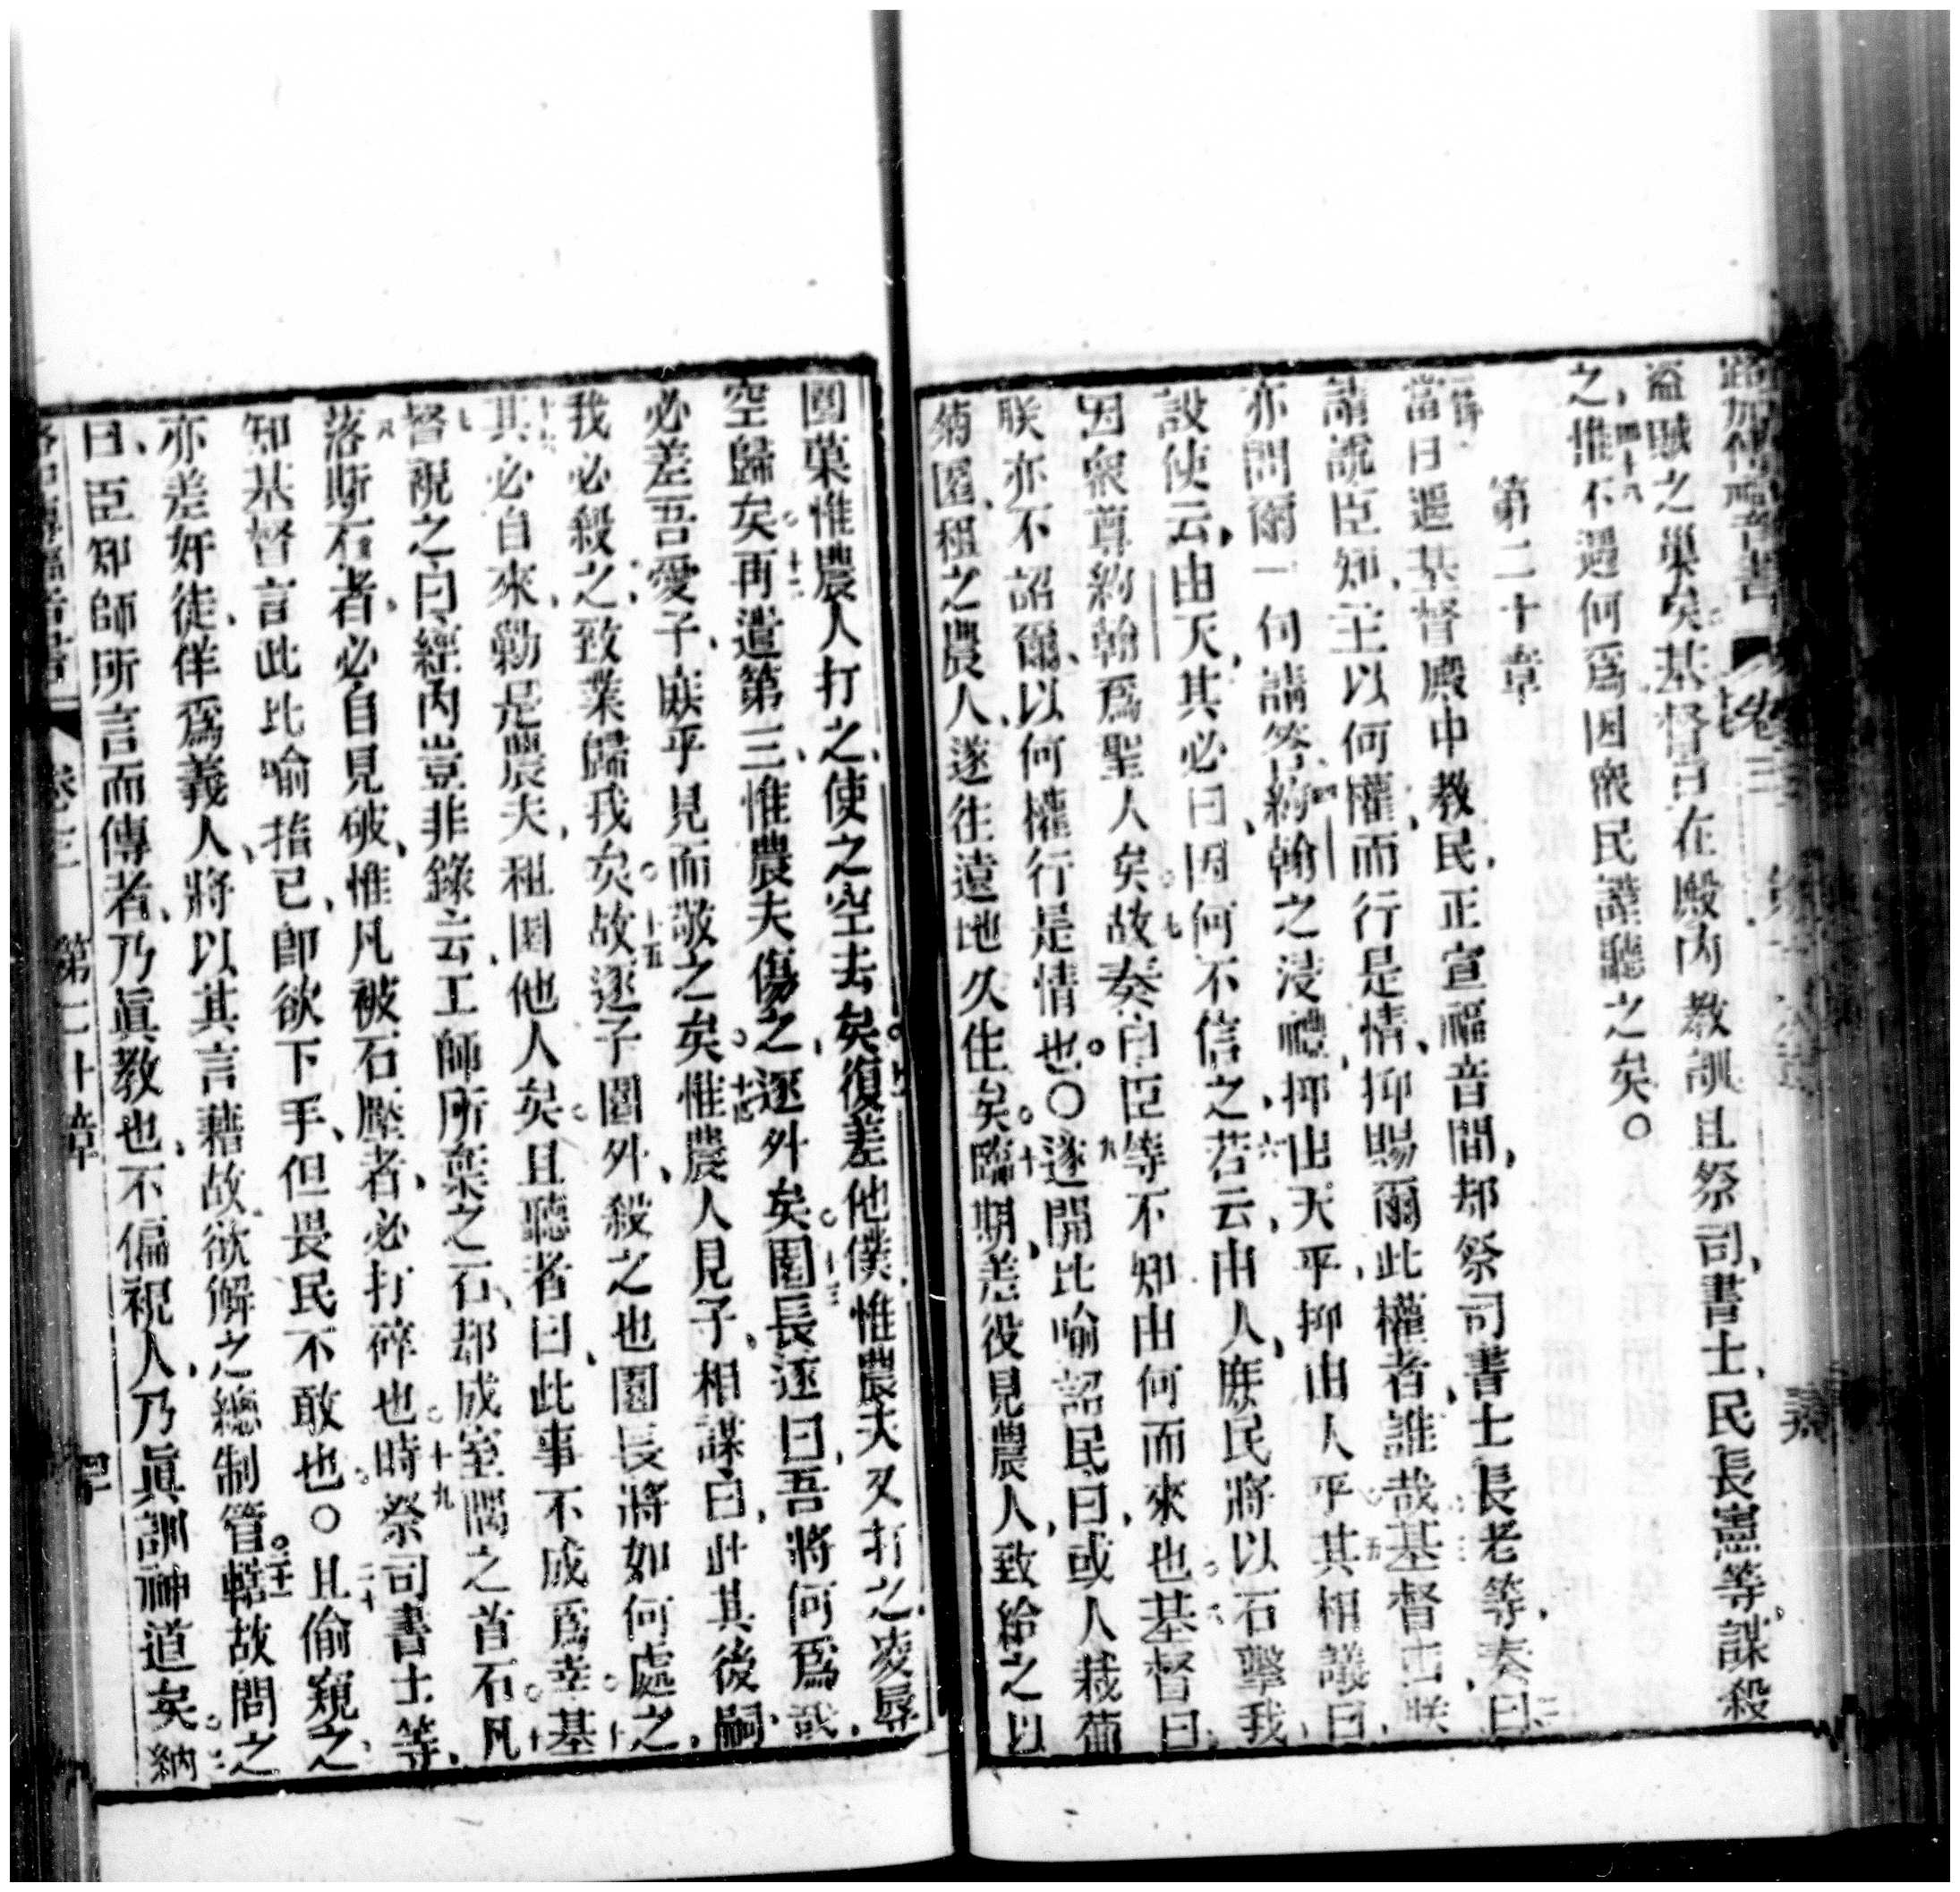 路加傳福音書 卷三
盜賊之巢矣基督言在殿內教訓且祭司書士民長憲等謀殺
之四十八惟不遇何爲因衆民謹聽之矣○
第二十章
一節
當日遥基督殿中教民正宣福音間却祭司書士長老等奏曰二
請說臣知主以何權而行是情抑賜爾此權者誰哉三基督曰朕
亦問爾一句請答四約翰之浸禮抑由天乎抑由人乎五其相議曰
設使云由天其必曰因何不信之六若云由人庶民將以石擊我
因衆尊約翰爲聖人矣七故奏曰臣等不知由何而來也八基督曰
朕亦不詔爾以何權行是情也○九遂開比喻詔民曰或人栽葡
萄園租之農人遂往遠地久住矣十臨期差役見農人致給之以
園菓惟農人打之使之空去矣十一復差他僕惟農夫又打之凌辱
空歸矣十二再遣第三惟農夫傷之逐外矣十三園長遂曰吾將何爲哉
必差吾愛子庶乎見而敬之矣十四惟農人見子相謀曰此其後嗣
我必殺之致業歸我矣十五故逐子園外殺之也園長將如何處之
十六其必自來勦是農夫租園他人矣且聽者曰此事不成爲幸十七基
督視之曰經內豈非錄云工師所棄之石却成室隅之首石十八凡
落斯石者必自見破惟凡被石壓者必打碎也十九時祭司書士等
知基督言此比喻指已卽欲下手但畏民不敢也○二十且偷窺之
亦差奸徒佯爲義人將以其言藉故欲解之總制管轄二十一故問之
曰臣知師所言而傳者乃眞教也不偏視人乃眞訓神道矣二十二納
路加傳福音書 卷三 第二十章